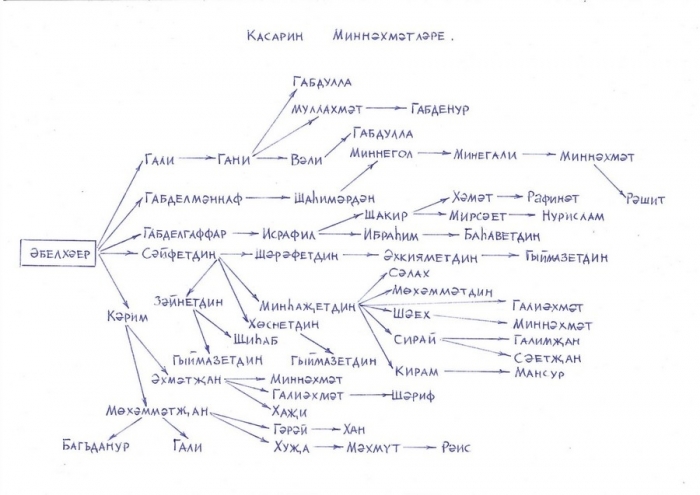 Касарин Миннәхмәтләре.
Габдулла
Муллахмәт Габденур
Габдулла
Гали Гани Вәли
Миннегол Минегали Миннәхмәт
Рәшит
Габделмәннаф Шаһимәрдән
Хәмәт Рафинәт
Шакир Мирсәет Нурислам
Габделгаффар Исрафил Ибраһим Баһаветдин
Әбелхәер
Сәйфетдин Шәрәфетдин Әхкияметдин Гыймазетдин
Сәлах
Мөхәммәтдин
Зәйнетдин Минһаҗетдин Шәех Галиәхмәт
Миннәхмәт
Кәрим
Хөснетдин
Шиһаб
Сирай Галимҗан
Сәетҗан
Гыймазетдин Гыймазетдин
Кирам Мансур
Әхмәтҗан Миннәхмәт
Галиәхмәт Шәриф
Хаҗи
Мөхәммәтҗан
Гәрәй Хан
Багъданур Гали Хуҗа Мәхмүт Рәис